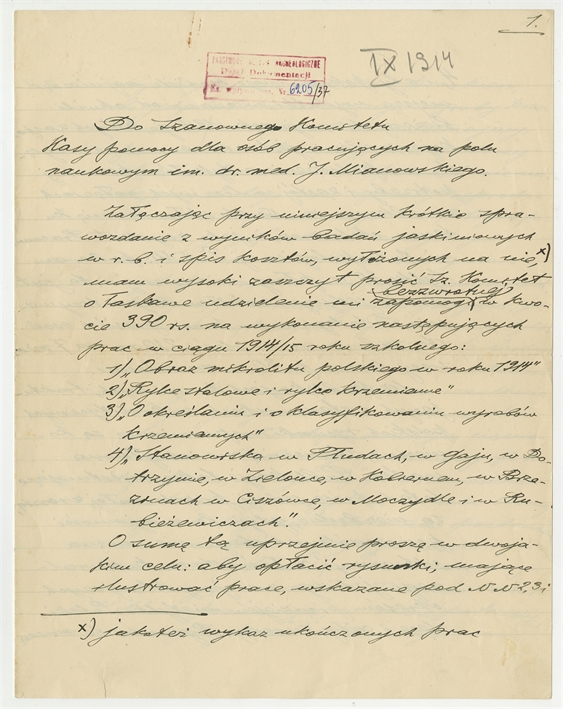 1.
IX 1914
PAŃSTWOWE MUZEUM ARCHEOLOGICZNE
Dział Dokumentacji
Nr. 6205/37
Do Szanownego Komitetu
Kasy pomocy dla osób pracujących na polu
naukowym im. dr. med. J. Mianowskiego.
Załączając przy niniejszym krótkie spra-
wozdanie z wyników badań jaskiniowych
w r. b. i spis kosztów, wyłożonych na nie, x)
mam wysoki zaszczyt prosić Sz. Komitet
o łaskawe udzielenie mi zapomogi bezzwrotnej w kwo-
cie 390 rs. na wykonanie następujących
prac w ciągu 1914/15 roku szkolnego:
1) „Obraz mikrolitu polskiego w roku 1914"
2) „Rylce stalowe i rylce krzemienne"
3) „O określaniu i o klasyfikowaniu wyrobów
krzemiennych"
4) „Stanowiska w Płudach, w Gaju, w Do-
trzymie, w Zielonce, w Kobierniu, w Brze-
zinach w Ciszówce, w Moczydle i w Ru-
bieżewiczach".
O sumę tą uprzejmie proszę w dwoja-
kim celu: aby opłacić rysunki, mające
ilustrować prace, wskazane pod N N 2, 3 i
x) jakoteż wykaz ukończonych prac